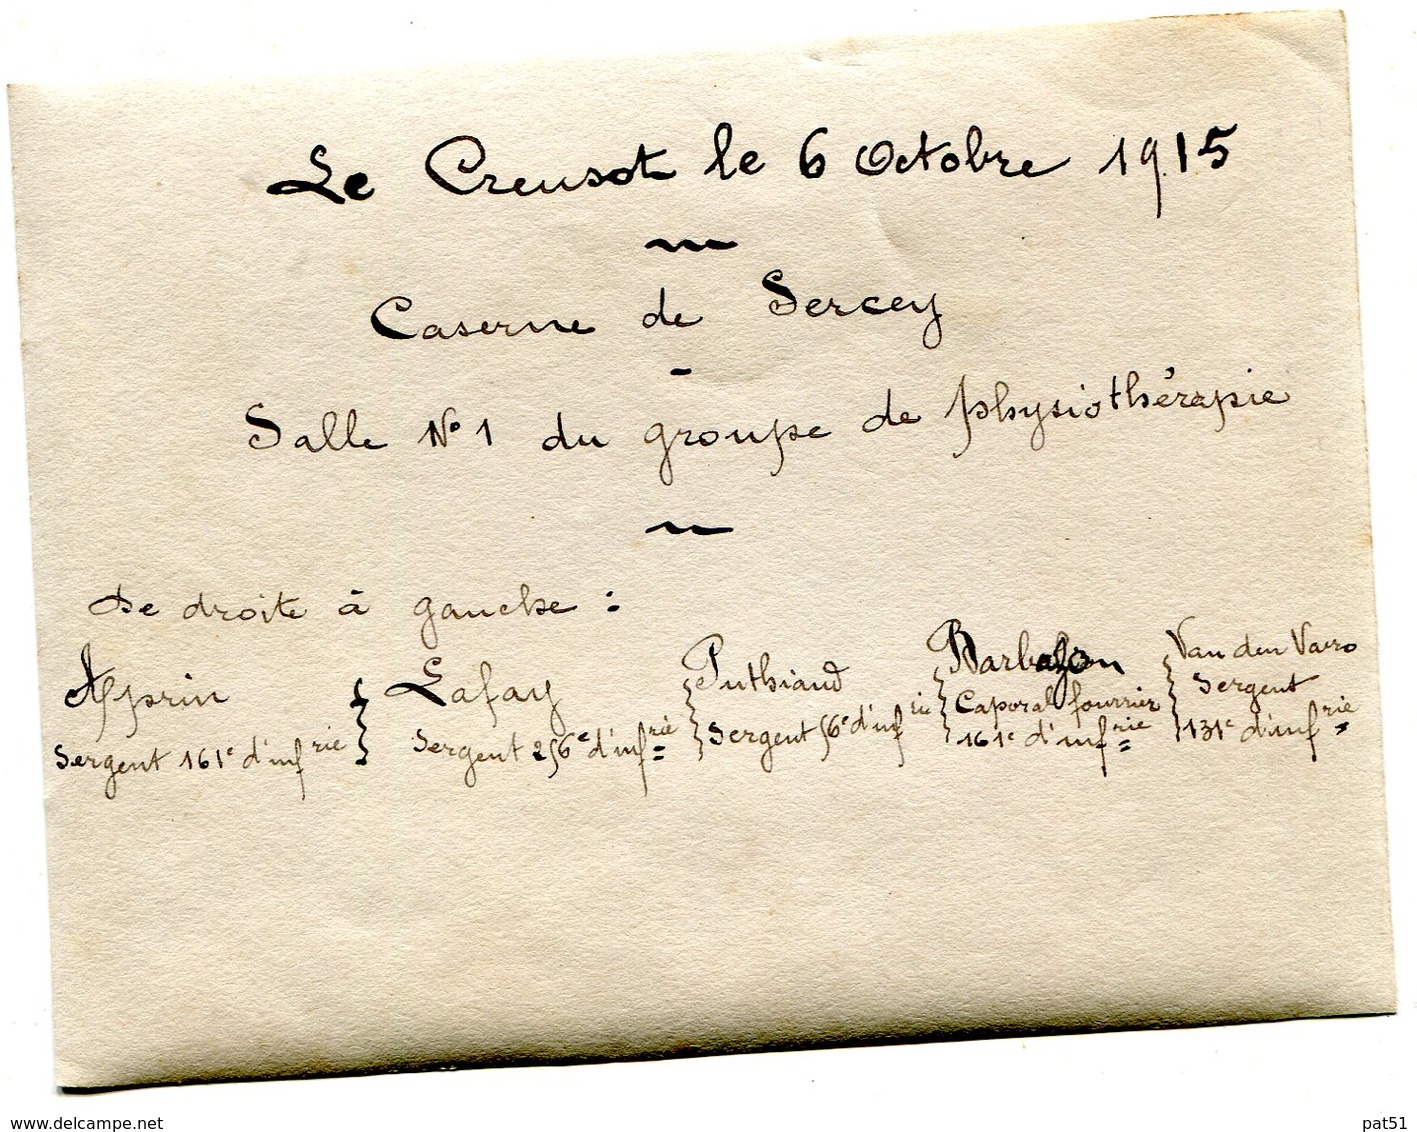 Le Creusot le 6 Octobre 1915
Caserne de Sercey
Salle N° 1 du groupe de physiothérapie
De droite à gauche :
Apprin
Sergent 161e d'infrie
Lafay
Sergent 256e d'infrie
Puthiaud
Sergent 56e d'infrie
Barbazon
Caporal fourrier
161e d'infrie
Van den Vaero
Sergent
131e d'infrie
www.delcampe.net
pat51